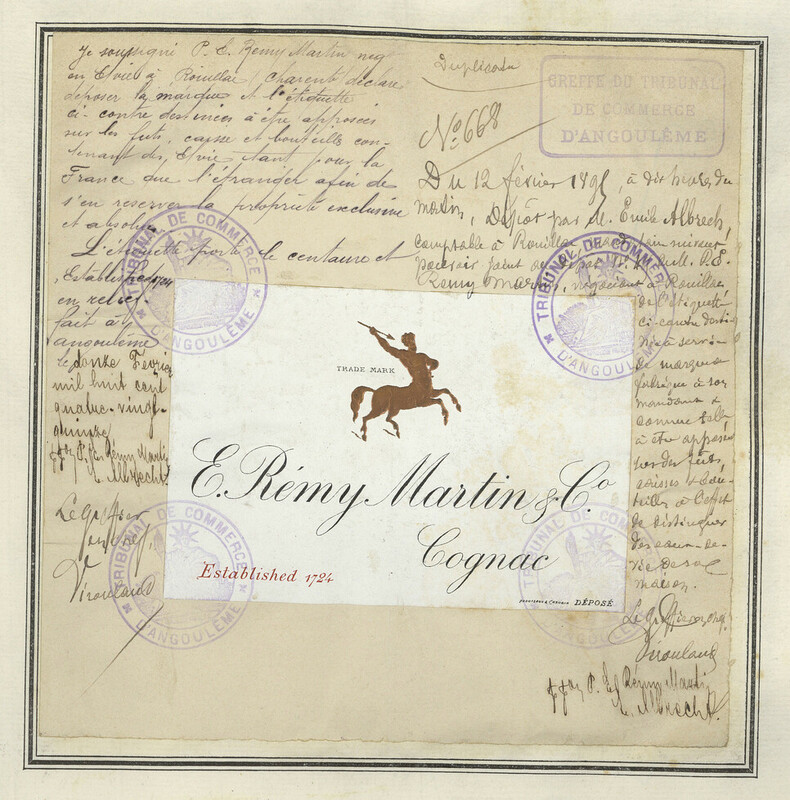 Je soussigné P. E. Remy Martin neg
en Dvie à Rouillac Charent déclare
déposer la marque et l'étiquette
ci-contre destinées à être apposées
sur les futs, caisse et bouteille con-
tenant des, tant pour la
France que l'étranger afin de
s'en reserver la propriété exclusive
et absolue
L'étiquette porte le centaure et
Established 1724
en relief
fait à
angoulême
le douze Fevrier
mil huit cent
quatre-vingt-
quinze
ppon P. E. Rémy Martin
E. Albrecht
Le Greffier
Viroulaud
Duplicata
No 668
GREFFE DU TRIBUNAL
DE COMMERCE
D'ANGOULÊME
Du 12 février 1895, à dix heures du
matin, Dépôt par M. Emile Albrech,
comptable à Rouillac
pouvoir joint P. E.
Remy Martin, négociant à Rouillac
de l'étiquette
ci-contre desti-
née à servir
de marque
fabrique à son
mandant &
comme telle
à être apposée
sur des futs,
caisses & bou-
teilles à l'effet
de distinguer
des eaux-de-
vie de sa
maison.
Le Greffier
Viroulaud
ppon P. E. Rémy Martin
E. Albrecht
TRIBUNAL DE COMMERCE
D'ANGOULÊME
TRIBUNAL DE COMMERCE
D'ANGOULÊME
TRADE MARK
E. Rémy Martin & Co
Cognac
Established 1724
DÉPOSÉ
TRIBUNAL DE COMMERCE
D'ANGOULÊME
TRIBUNAL DE COMMERCE
D'ANGOULÊME